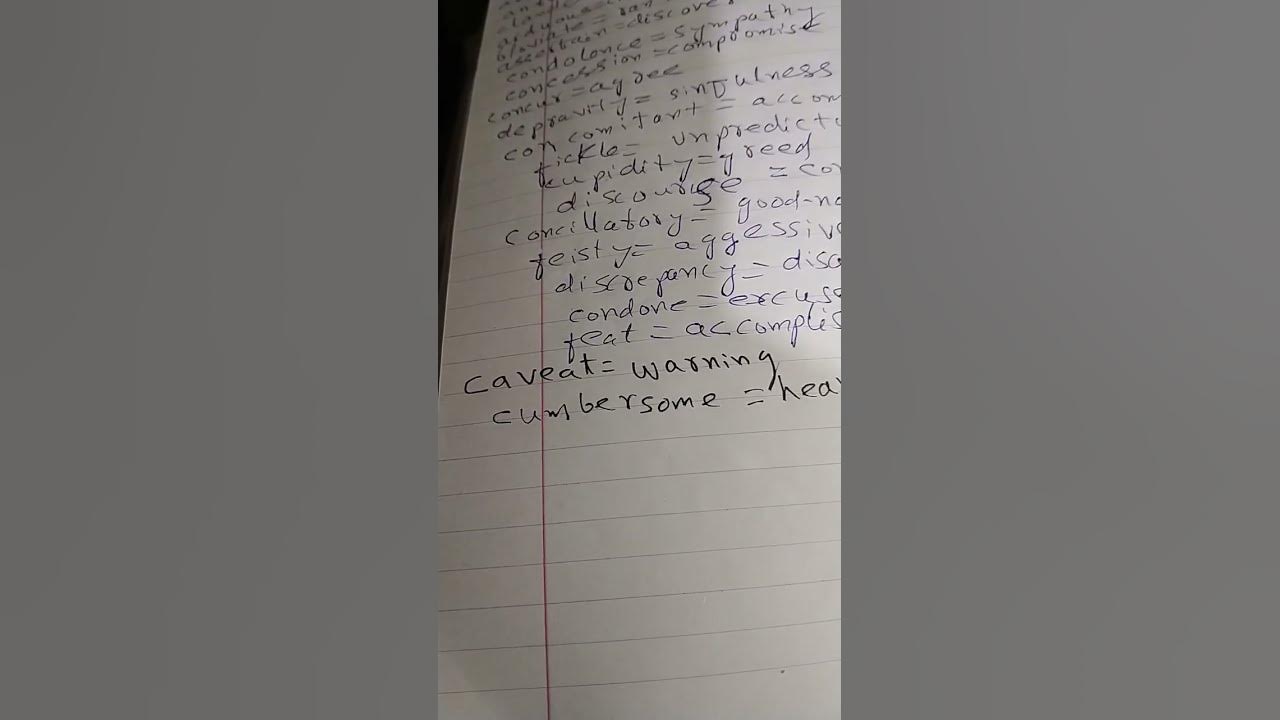 arduous =
bloviate = ran
ascertain = discove
condolence = sympathy
concession = compromise
concur = agree
depravity = sinfulness
concomitant = accom
fickle = unpredicta
cupidity = greed
discourse = con
concillatory = good-na
feisty = aggessive
discrepancy = disa
condone = excuse
feat = accomplis
caveat = warning
cumbersome = hea